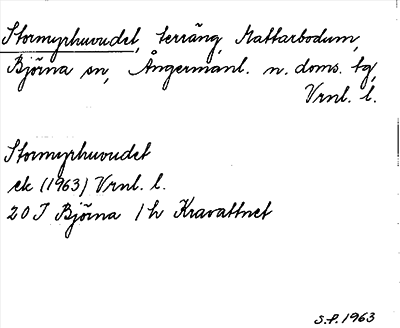 Stormyrhuvudet, terräng, Mattarbodum,
Björna sn, Ångermanl. n. doms. tg,
Vrnl. l.
Stormyrhuvudet
ek (1963) Vrnl. l.
20 I Björna 1 h Kravattnet
S.f. 1963